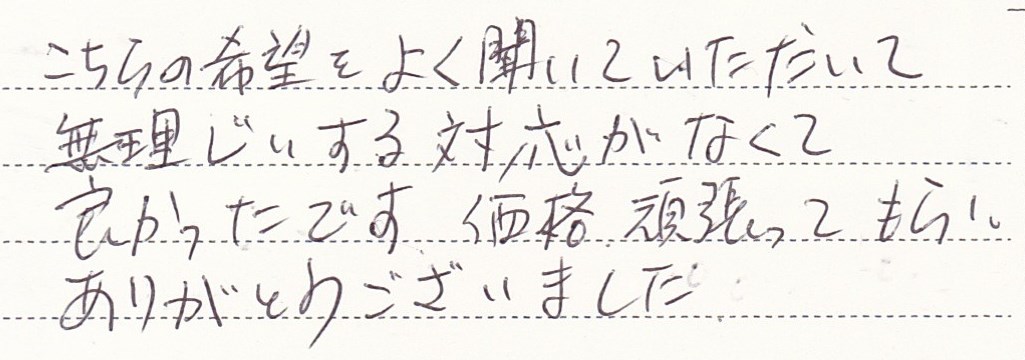 こちらの希望をよく聞いていただいて
無理じいする対応がなくて
良かったです。価格、頑張ってもらい
ありがとうございました